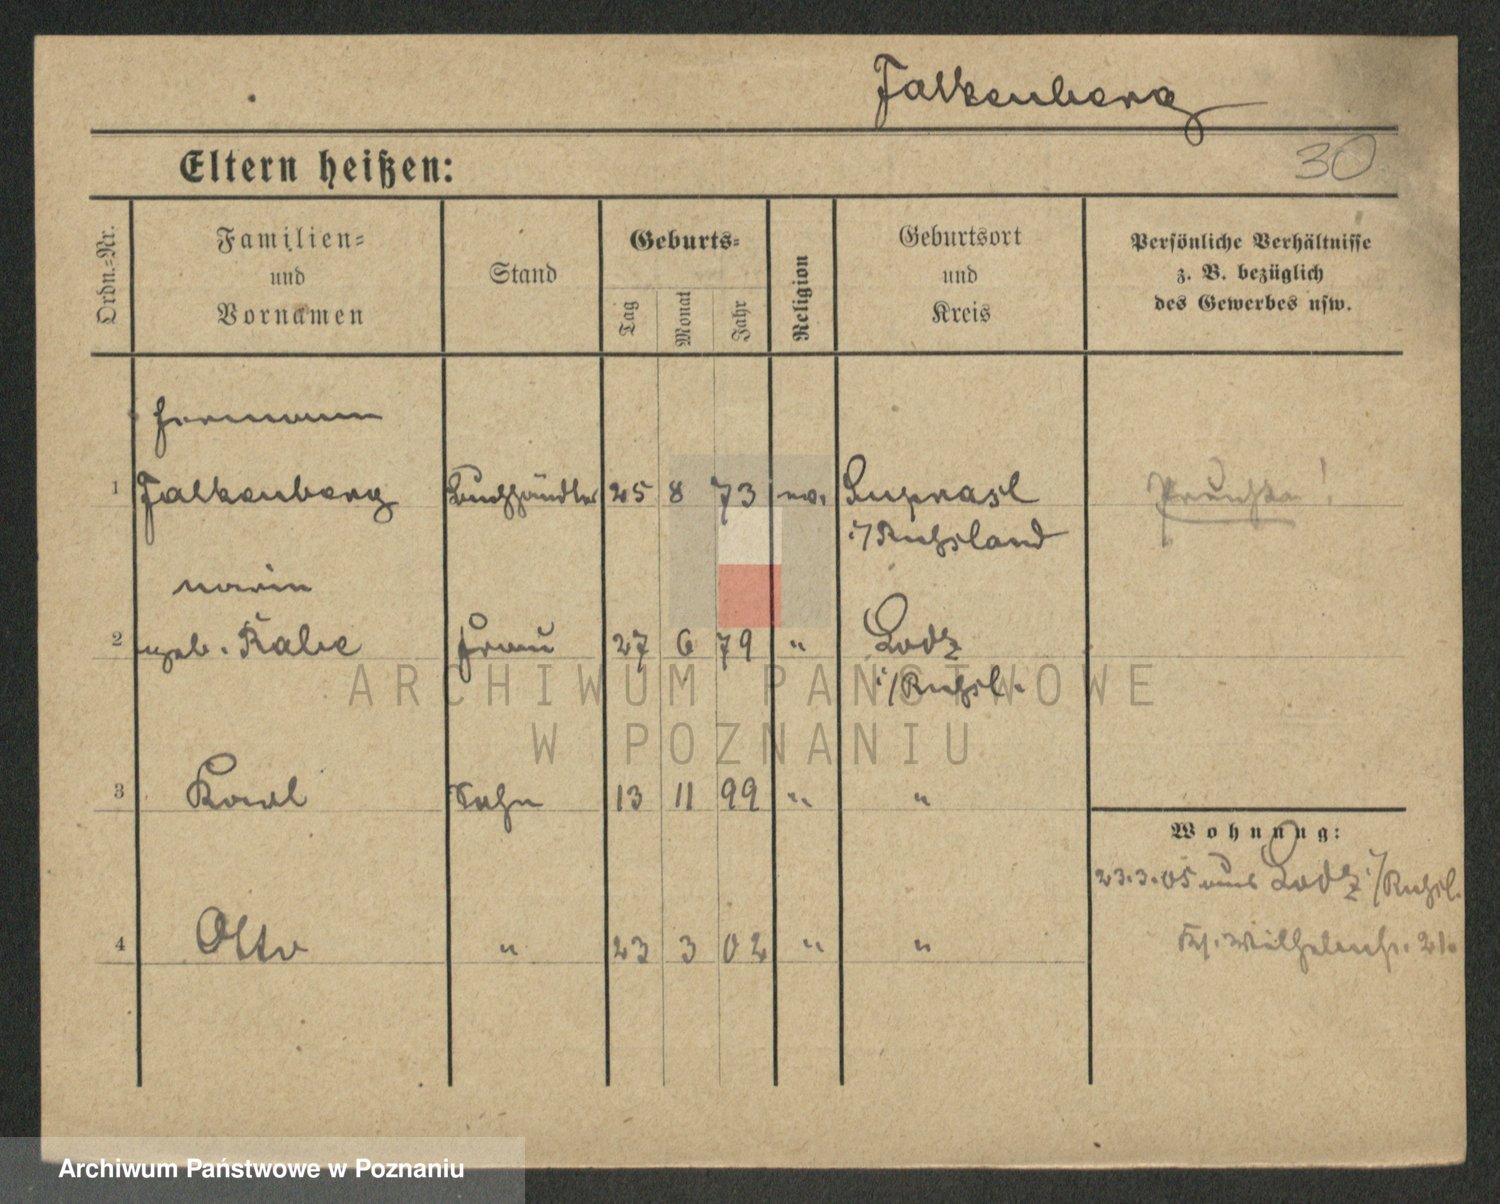 Falkenberg
Eltern heißen:
30
Ordn.-Nr.
Familien-
und
Vornamen
Stand
Geburts-
Tag
Monat
Jahr
Religion
Geburtsort
und
Kreis
Persönliche Verhältnisse
z. B. bezüglich
des Gewerbes usw.
Hermann
1 Falkenberg Buchhändler 25 8 73 ev. Suprasl
i/Russland
2 geb. Rabe Frau 27 6 79 " Lodz
i/Russl.
3 Karl Sohn 13 11 99 " "
Wohnung:
23.3.05 aus Lodz i/Russl.
4 Otto " 23 3 02 " "
Wilhelmstr. 21.
ARCHIWUM PAŃSTWOWE
W POZNANIU
Archiwum Państwowe w Poznaniu